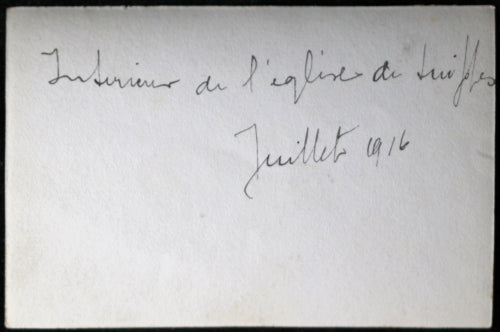 Interieur de l'église de Suippes
Juillet 1916